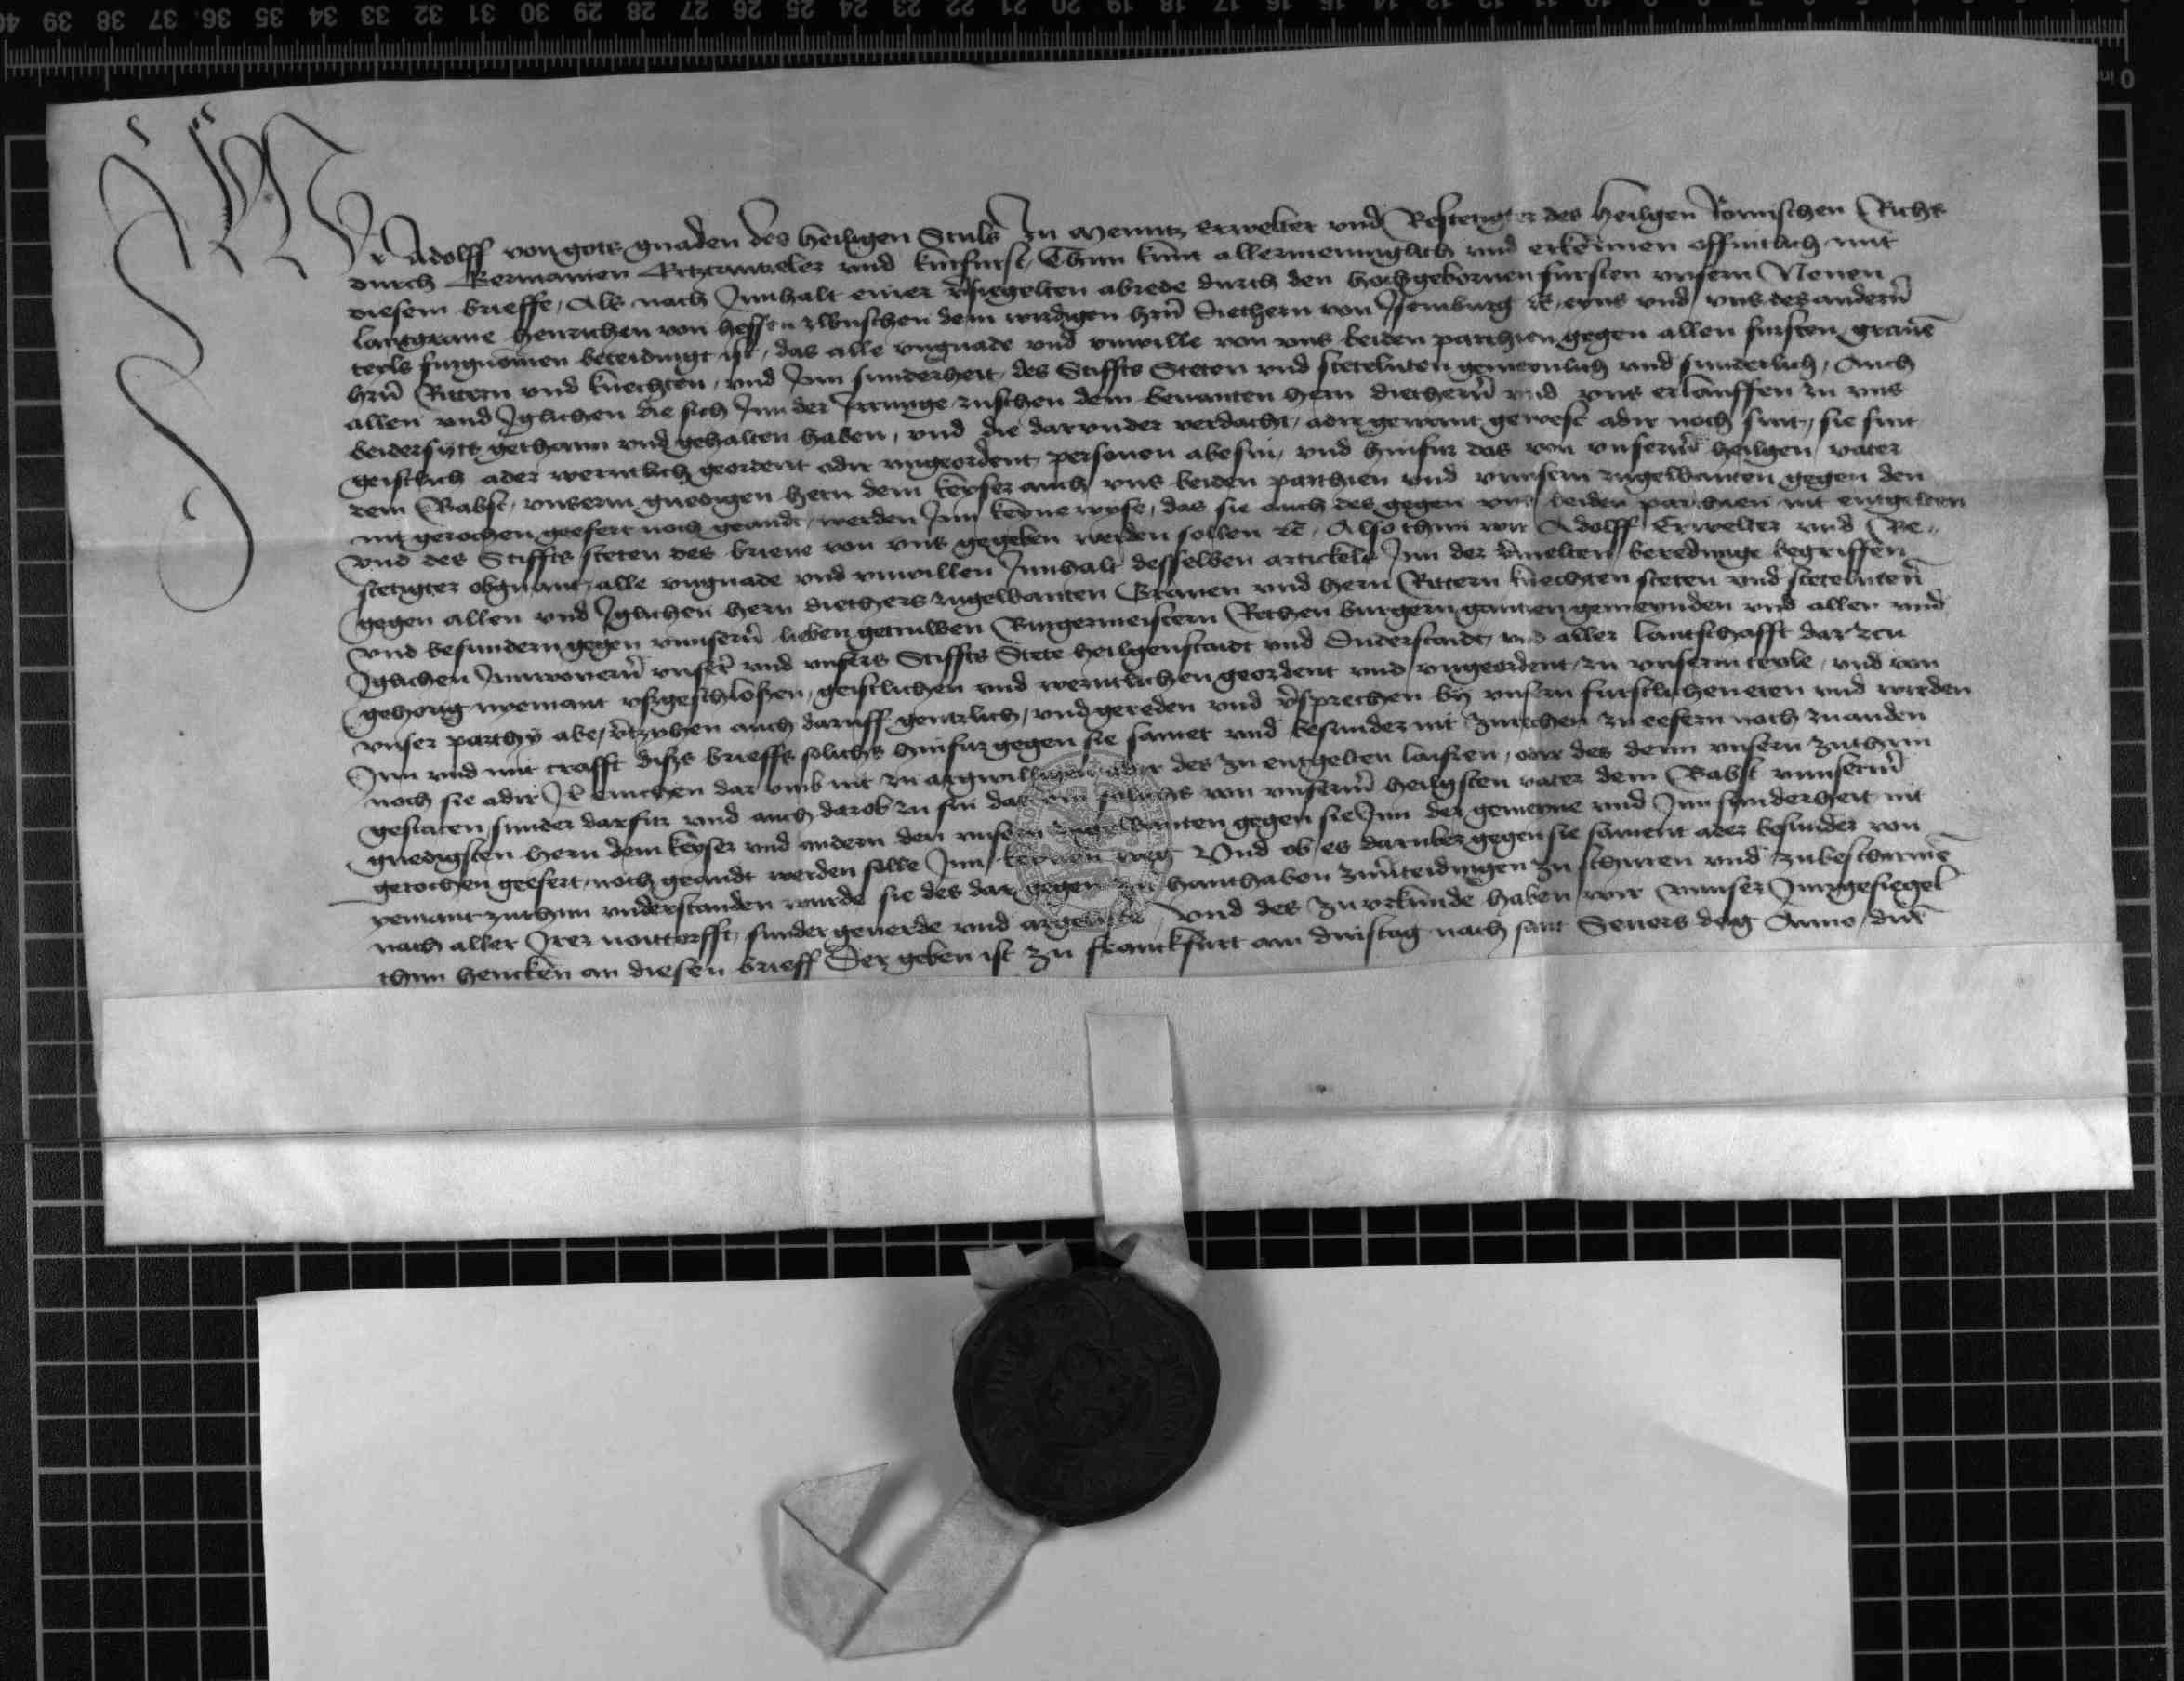 Wir Adolff von gots gnaden des heiligen Stuls zu Mentz Erwelter vnd Bestetigter des heilgen Romischen Richs
durch Germanien Ertzcantzeler vnd kurfurst, Thun kunt allermenniglich vnd erkennen offintlich mit
diesem brieffe, Als nach Innhalt einer v̉siegelten abrede durch den hochgebornen fursten vnsern Neuen
lantgraue henrichen von hessen zwuschen dem wirdigen hrn̄ Diethern von Isemburg ꝛc, eyns vnd vns des andern̄
teyls furgnomen beteidingt ist, das alle vngnade vnd vnwille von vns beiden parthien gegen allen fursten grauē
hrn̄ Rittern vnd knechten, vnd Inn sunderheit des Stiffts Steten vnd steteluten gemeynlich vnd sunderlich, Auch
allen vnd Iglichen die sich Inn der Irrunge zuschen dem benanten hern diethern̄ vnd vns erlauffen zu vns
beidersytt gethann vnd gehalten haben, vnd die darvnder verdacht, adir gewant gewest adir noch sint, sie sint
geistlich ader werntlich geordent adir vngeordent, personen abesin, vnd hinfur das von vnserm̄ heilgen vater
dem Babst, vnserm gnedigen hern dem keyser auch vns beiden parthien vnd vnnsern zugewanten gegen den
nit gerochen geefert noch geandt, werden Inn keyne wyse, das sie auch des gegen vns beiden parthien nit entgelten
vnd des Stiffts steten des brieue von vns gegeben werden sollen ꝛc, Also thun wir Adolff Erwelter vnd Be„
stetigter obgnant, alle vngnade vnd vnwillen Innhalt desselben artickels Inn der v̉melten beredunge begriffen
gegen allen vnd Iglichen hern diethers zugewanten Grauen vnd hern Rittern knechten steten vnd stetelutern̄
vnd besundern gegen vnnsern̄ lieben getruwen Burgermeistern Rethen burgern gantzen gemeynden vnd allen vnd
Iglichen Innwonern̄ vnser̄ vnd vnsers Stiffts Stete heilgenstadt vnd Duderstadt, vnd aller lantschafft dar zcu
gehorig nyemant vszgeschloszen, geistlichen vnd werntlichen geordent vnd vngeordent, zu vnserm teyle, vnd von
vnser parthy abe, v̉tzyhen auch daruff gentzlich, vnd gereden vnd v̉sprechen by vnsern furstlichen eren vnd wirden
Inn vnd mit crafft disz brieffs solichs hinfur gegen sie samet vnd besunder nit zurechen zu eefern noch zuanden
noch sie adir Ir einichen dar vmb nit zu argwilligen adir des zu entgelten laiszen, adir des denn vnsern zuthun
gestaten, sunder darfur vnd auch darob zu sin das solichs von vnserm̄ heiligsten vater dem Babst vnnserm̄
gnedigsten hern dem keyser vnd andern den vnsern zugewanten gegen sie Inn der gemeyne vnd Inn sunderheit nit
gerochen geefert, noch geandt werden solle Inn keynen weg Vnd ob es daruber gegen sie sament ader besunder von
yemant zuthun vnderstanden wurde sie des dar gegen zu hanthaben zuv̉teidingen zu schuren vnd zubeschirmē
nach aller Irer nottorfft, sunder geuerde vnd argeliste Vnd des zu vrkunde haben wir vnnser Inngesiegel
thun hencken an diesen brieff Der geben ist zu franckfurt am dinstag nach sant Seuers dag Anno, dnī